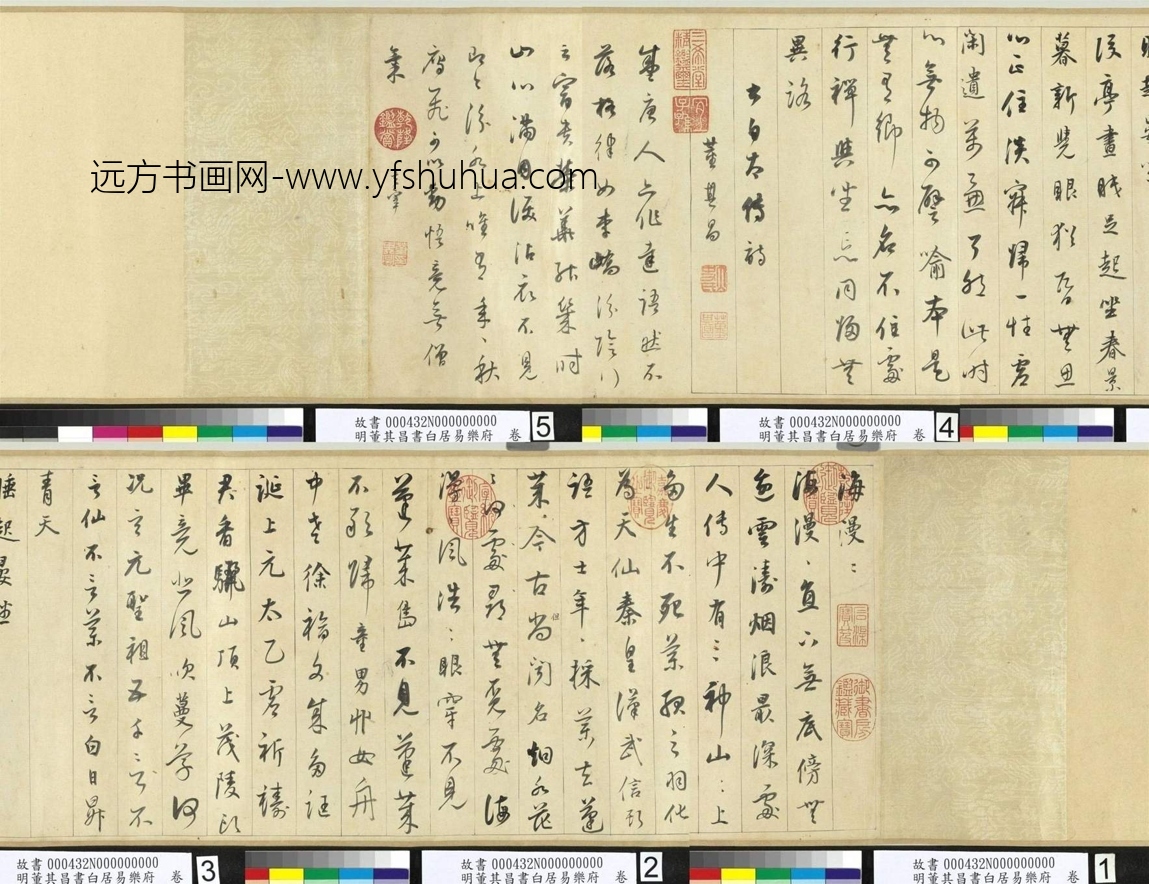 海漫〻
海漫〻直下無底傍無
邊雲濤烟浪最深處
人傳中有三神山〻上
多生不死藥服之羽化
為天仙秦皇漢武信此
語方士年〻採藥去蓬
萊今古尚聞名烟水茫
〻何處尋無覓處海
漫〻風浩〻眼穿不見
蓬萊島不見蓬萊
不敢歸童男丱女舟
中老徐福文成多誑
誕上元太乙虛祈禱
君看驪山頂上茂陵頭
畢竟悲風吹蔓草何
況玄元聖祖五千言不
言仙不言藥不言白日昇
青天
睡起晏坐
後亭晝眠足起坐春景
暮新覺眼猶昏無思
心正住淡寂歸一性虛
閑遺萬慮了然此時
心無物可譬喻本是
無有鄉亦名不住處
行禪與坐忘同歸無
異路
右白太傅詩
董其昌
盛唐人亦作達語然不
落格律如李嶠汾陰行
云富貴榮華能幾時
山川滿目淚沾衣不見
即今汾水上唯有年〻秋
鴈飛可以動悟竟無僧
氣
远方书画网-www.yfshuhua.com
故書 000432N000000000
明董其昌書白居易樂府 卷 5
故書 000432N000000000
明董其昌書白居易樂府 卷 4
故書 000432N000000000
明董其昌書白居易樂府 卷 3
故書 000432N000000000
明董其昌書白居易樂府 卷 2
故書 000432N000000000
明董其昌書白居易樂府 卷 1